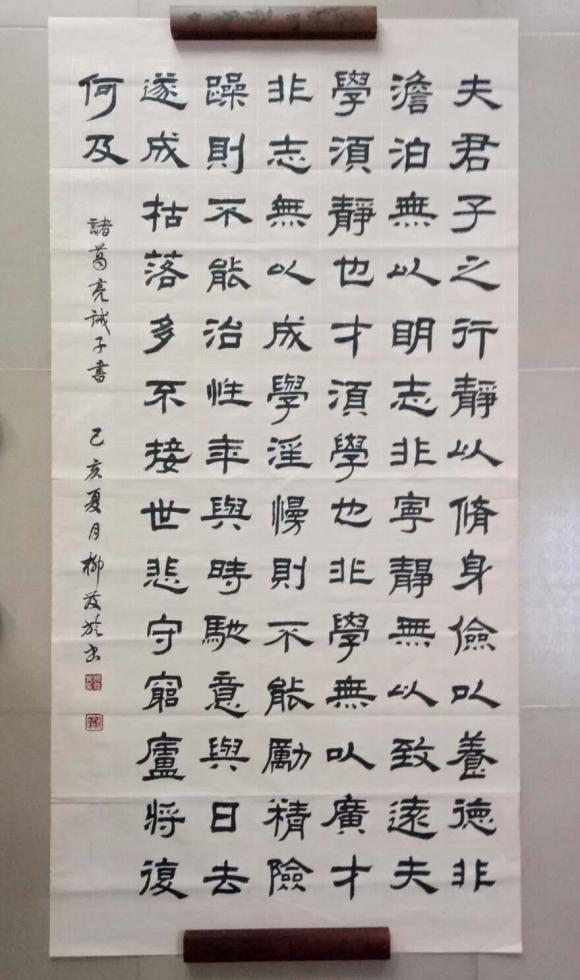 夫君子之行靜以脩身儉以養德非
澹泊無以明志非寧靜無以致遠夫
學須靜也才須學也非學無以廣才
非志無以成學淫慢則不能勵精險
躁則不能治性年與時馳意與日去
遂成枯落多不接世悲守窮廬將復
何及
諸葛亮誡子書 己亥夏月柳